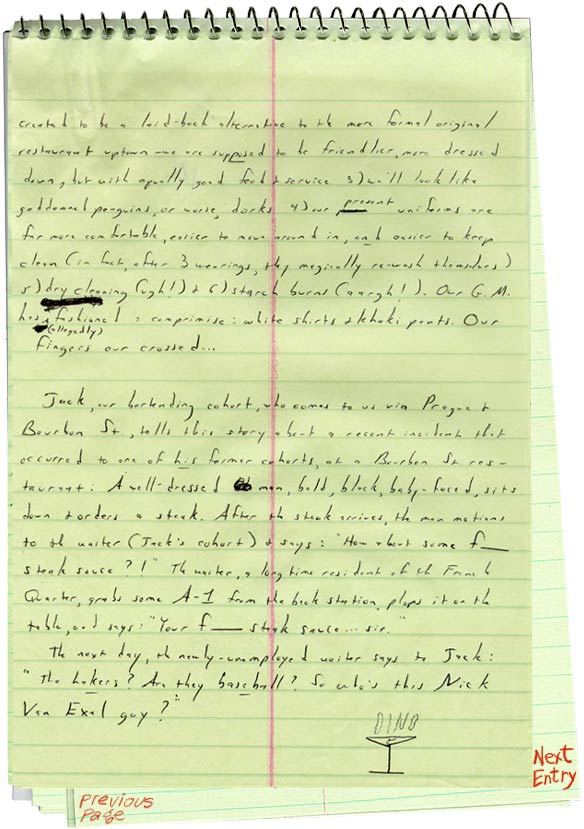 created to be a laid-back alternative to the more formal original
restaurant uptown—we are supposed to be friendlier, more dressed
down, but with equally good food & service 3) we'll look like
goddamned penguins, or worse, dorks 4) our present uniforms are
far more comfortable, easier to move around in, and easier to keep
clean (in fact, after 3 wearings, they magically re-wash themselves)
5) dry cleaning (ugh!) & 6) starch burns (aargh!). Our G.M.
has fashioned a comprimise: white shirts & khaki pants. Our
(allegedly)
fingers our crossed...
Jack, our bartending cohort, who comes to us via Prague &
Bourbon St., tells this story about a recent incident that
occurred to one of his former cohorts, at a Bourbon St. res-
taurant: A well-dressed man, bald, black, baby-faced, sits
down & orders a steak. After the steak arrives, the man motions
to the waiter (Jack's cohort) & says: "How about some f___
steak sauce?!" The waiter, a longtime resident of the French
Quarter, grabs some A-1 from the back station, plops it on the
table, and says: "Your f___ steak sauce... sir."
The next day, the newly-unemployed waiter says to Jack:
"The Lakers? Are they baseball? So who's this Nick
Van Exel guy?"
DINO
Next
Entry
Previous
Page